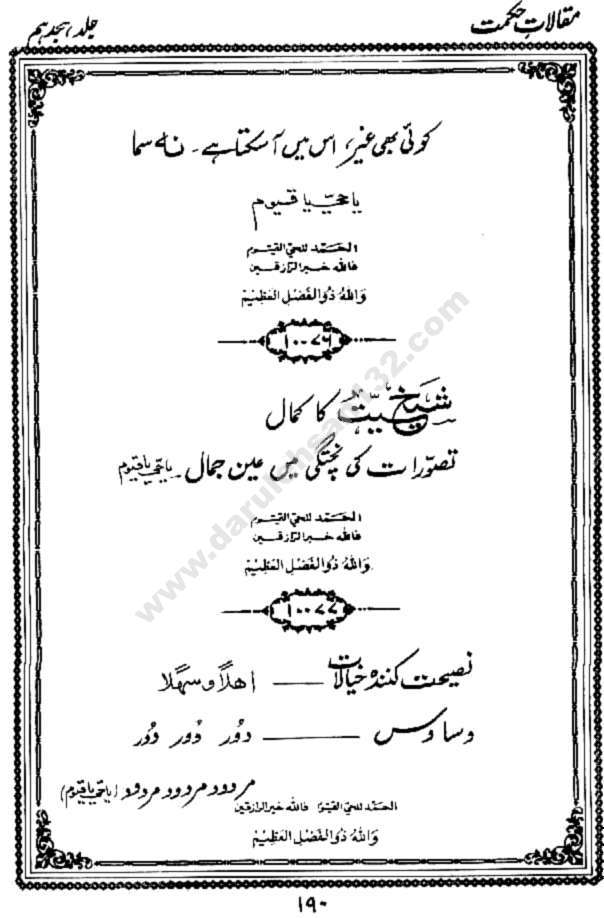 مقالاتِ حکمت
جلد ہجدہم
کوئی بھی غیر، اس میں آ سکتا ہے۔ نہ سما
یاحیّ یاقیوم
الحَمد للحیّ القیّوم
فاللہ خیر الرازقین
وَاللہُ ذُوالفَضْلِ العَظِیْم
۱۰۰۷۶
شیخیّت کا کمال
تصوّرات کی پختگی میں عین جمال۔ یاحیّ یاقیوم
الحَمد للحیّ القیّوم
فاللہ خیر الرازقین
وَاللہُ ذُوالفَضْلِ العَظِیْم
۱۰۰۷۷
نصیحت کنندہ خیالات —— اھلاً و سھلا
وساوس —— دُور دُور دُور
مردود مردود مردود (یاحیّ یاقیوم)
الحَمد للحیّ القیّوم فاللہ خیر الرازقین
وَاللہُ ذُوالفَضْلِ العَظِیْم
۱۹۰